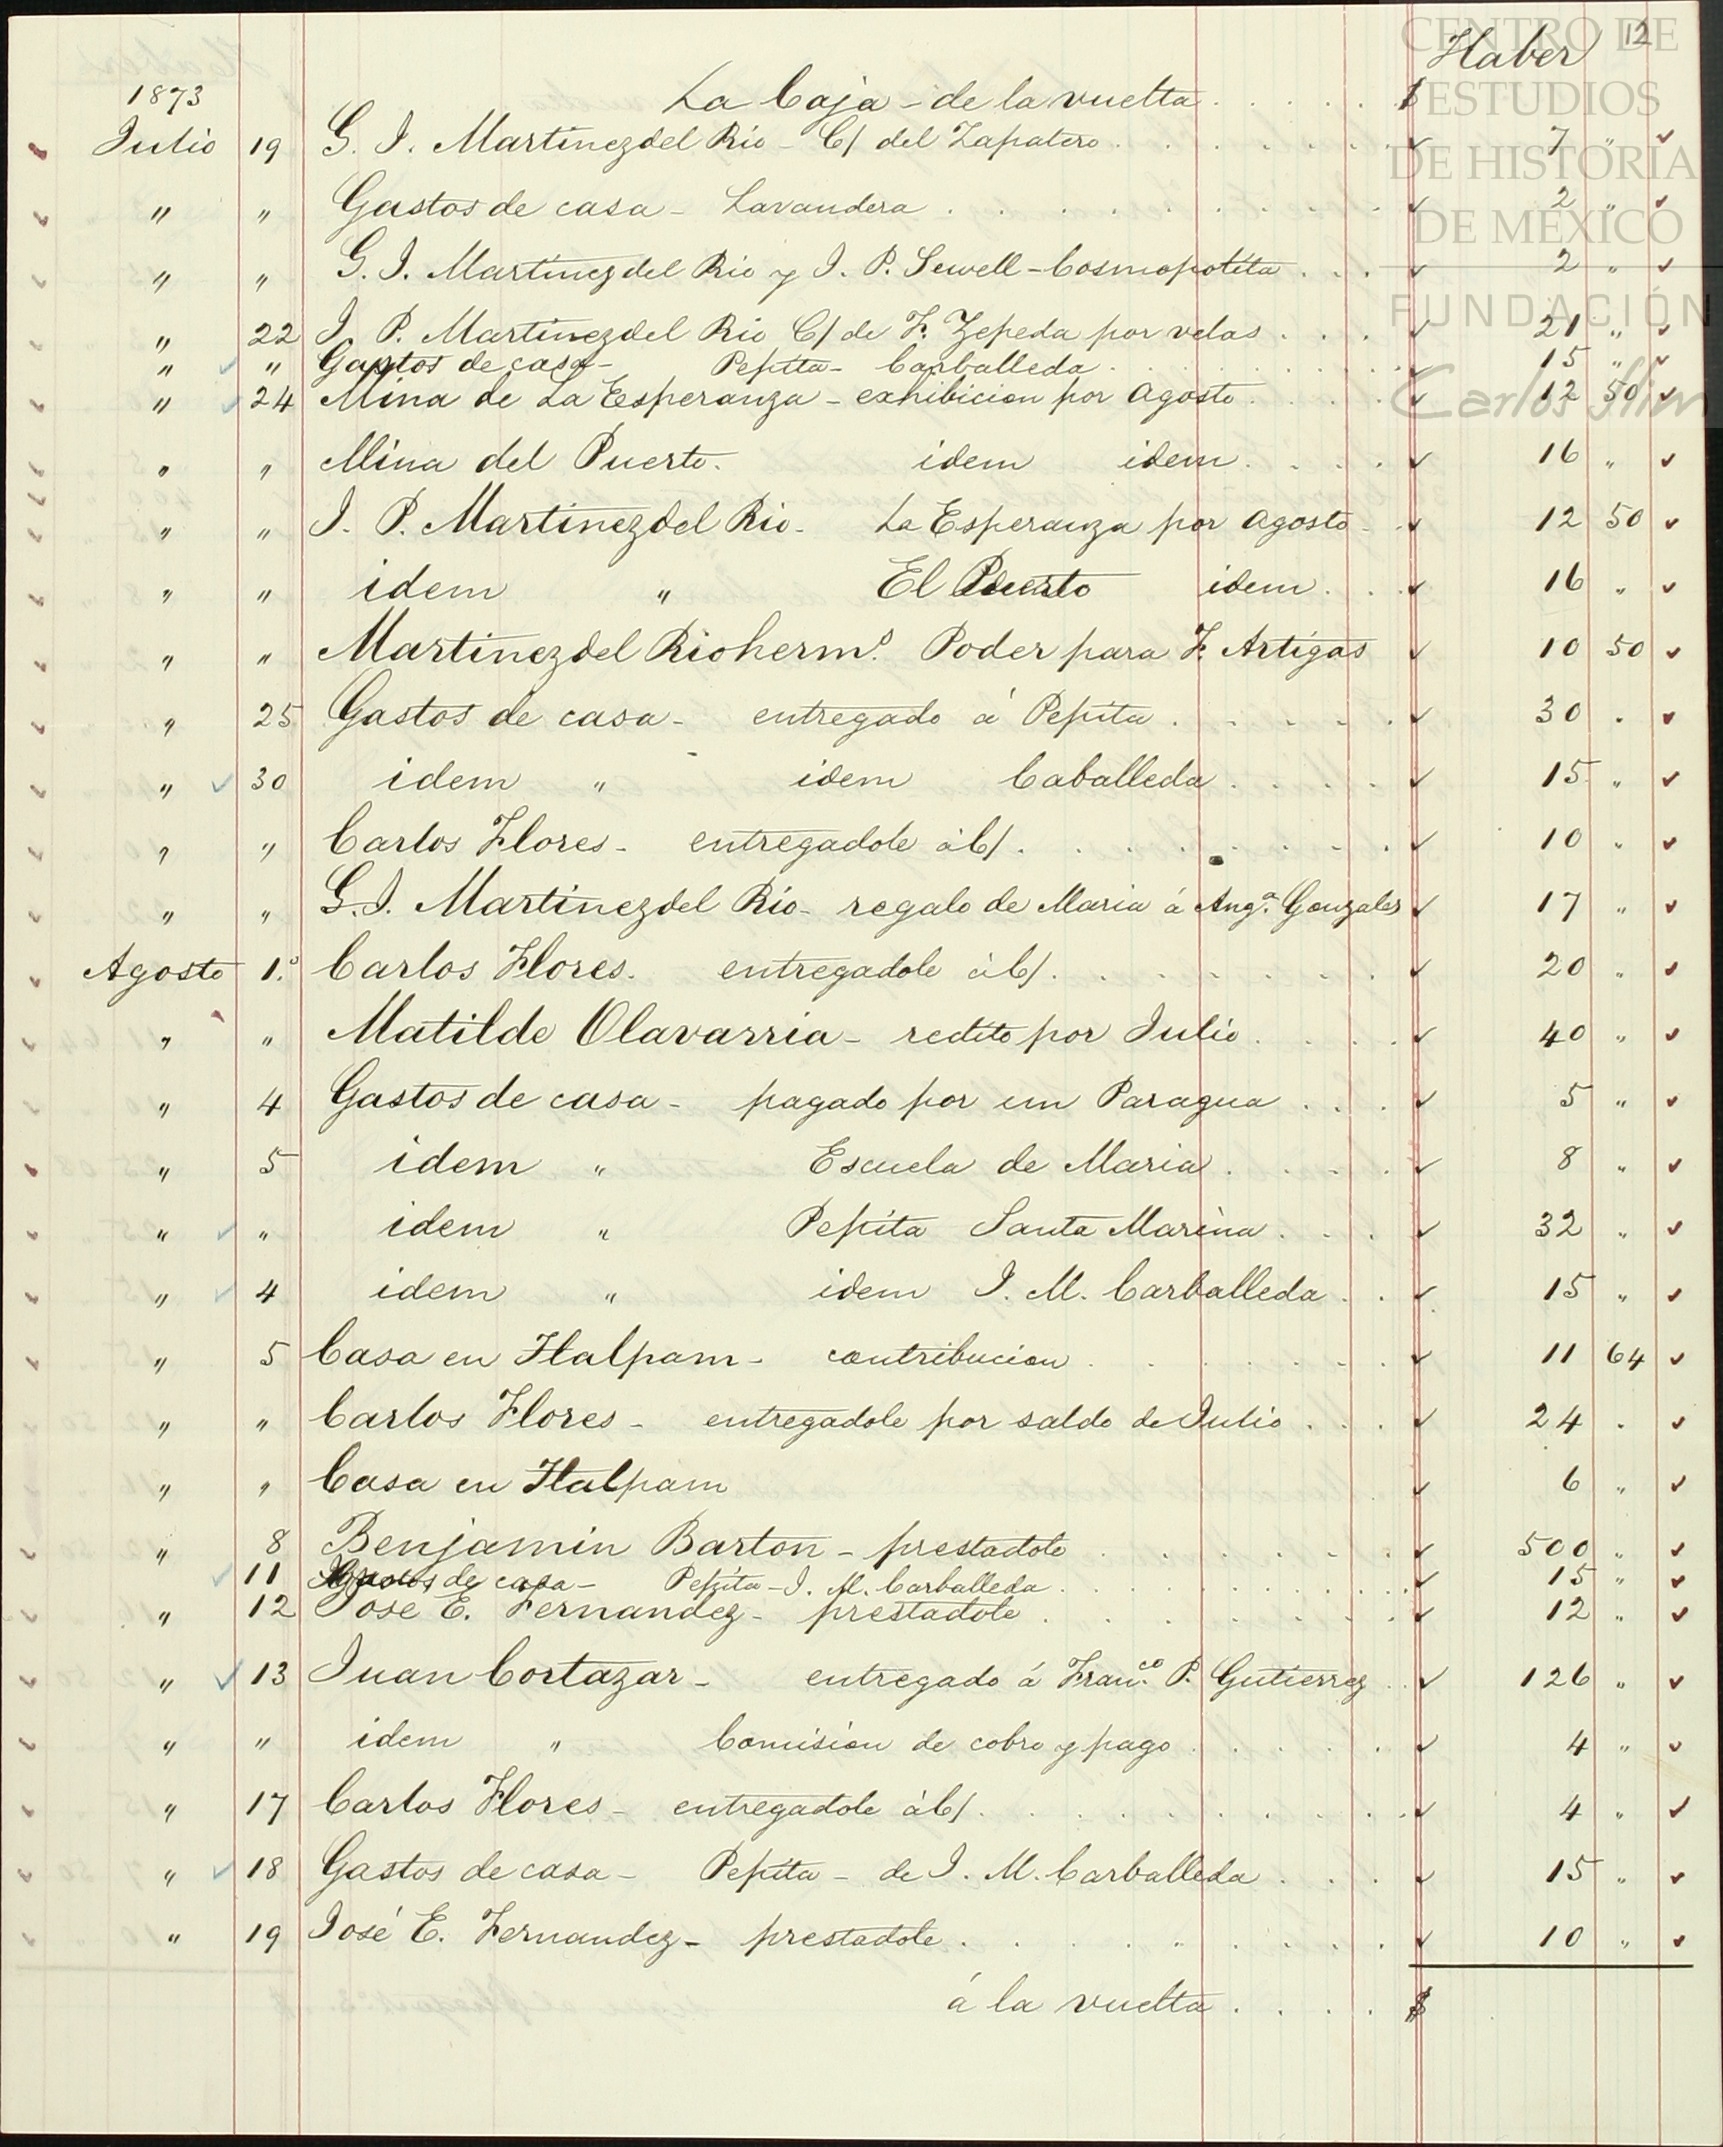 Haber 12
CENTRO DE
ESTUDIOS
DE HISTORIA
DE MEXICO
FUNDACIÓN
Carlos Slim
1873 La Caja - de la vuelta . . . . . $
Julio 19 G. I. Martinez del Rio - C/ del Zapatero . . . 7 "
" " Gastos de casa - Lavandera . . . 2 "
" " G. I. Martinez del Rio y I. P. Sewell - Cosmopolita . . . 2 "
" 22 I. P. Martinez del Rio C/ de F. Zepeda por velas . . . 21 "
" " Gastos de casa - Pepita - Carballeda . . . 15 "
" 24 Mina de La Esperanza - exhibicion por Agosto . . . 12 50
" " Mina del Puerto. idem idem . . . 16 "
" " I. P. Martinez del Rio - La Esperanza por Agosto - 12 50
" " idem " El Puerto idem . . . 16 "
" " Martinez del Rio herm.s Poder para F. Artigas 10 50
" 25 Gastos de casa - entregado á Pepita . . . 30 "
" 30 idem " idem Caballeda . . . 15 "
" " Carlos Flores - entregadole á C/ . . . 10 "
" " G. I. Martinez del Rio - regalo de Maria á Ang.a Gonzales 17 "
Agosto 1.o Carlos Flores. entregadole á C/ . . . 20 "
" " Matilde Olavarria - redito por Julio . . . 40 "
" 4 Gastos de casa - pagado por un Paragua . . . 5 "
" 5 idem " Escuela de Maria . . . 8 "
" " idem " Pepita Santa Marina . . . 32 "
" 4 idem " idem I. M. Carballeda . . 15 "
" 5 Casa en Tlalpam - contribucion . . . 11 64
" " Carlos Flores - entregadole por saldo de Julio . . . 24 "
" " Casa en Tlalpam 6 "
" 8 Benjamin Barton - prestadole . . . 500 "
11 Gastos de casa - Pepita - I. M. Carballeda . . . 15 "
" 12 José E. Fernandez - prestadole . . . 12 "
" 13 Juan Cortazar - entregado á Fran.co P. Gutierrez . . 126 "
" " idem " Comision de cobro y pago . . . 4 "
" 17 Carlos Flores - entregadole á C/ . . . 4 "
" 18 Gastos de casa - Pepita - de I. M. Carballeda . . . 15 "
" 19 José E. Fernandez - prestadole . . . 10 "
á la vuelta . . . . $